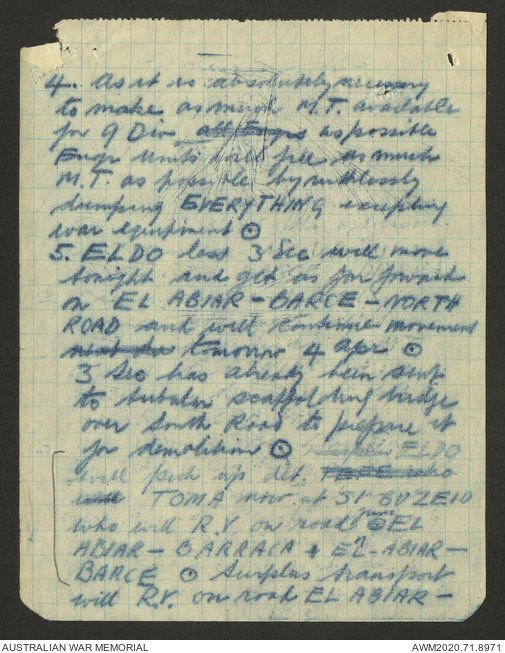 4. As it is absolutely necessary
to make as much M.T. available
for 9 Div all Engrs as possible
Engr Units will free as much
M.T. as possible by ruthlessly
dumping EVERYTHING excepting
war equipment ⊙
5. ELDO less 3 Sec will move
tonight and get as far forward
on EL ABIAR - BARCE - NORTH
ROAD and will continue movement
tomorrow 4 Apr ⊙
3 Sec has already been sent
to tubular scaffolding bridge
over South Road to prepare it
for demolition ⊙ ELDO
will pick up det. who
will TOMA now at
who will R.V. on road junc EL
ABIAR - BARRACA & EL-ABIAR -
BARCE ⊙ Surplus transport
will R.V. on road EL ABIAR -
AUSTRALIAN WAR MEMORIAL
AWM2020.71.8971